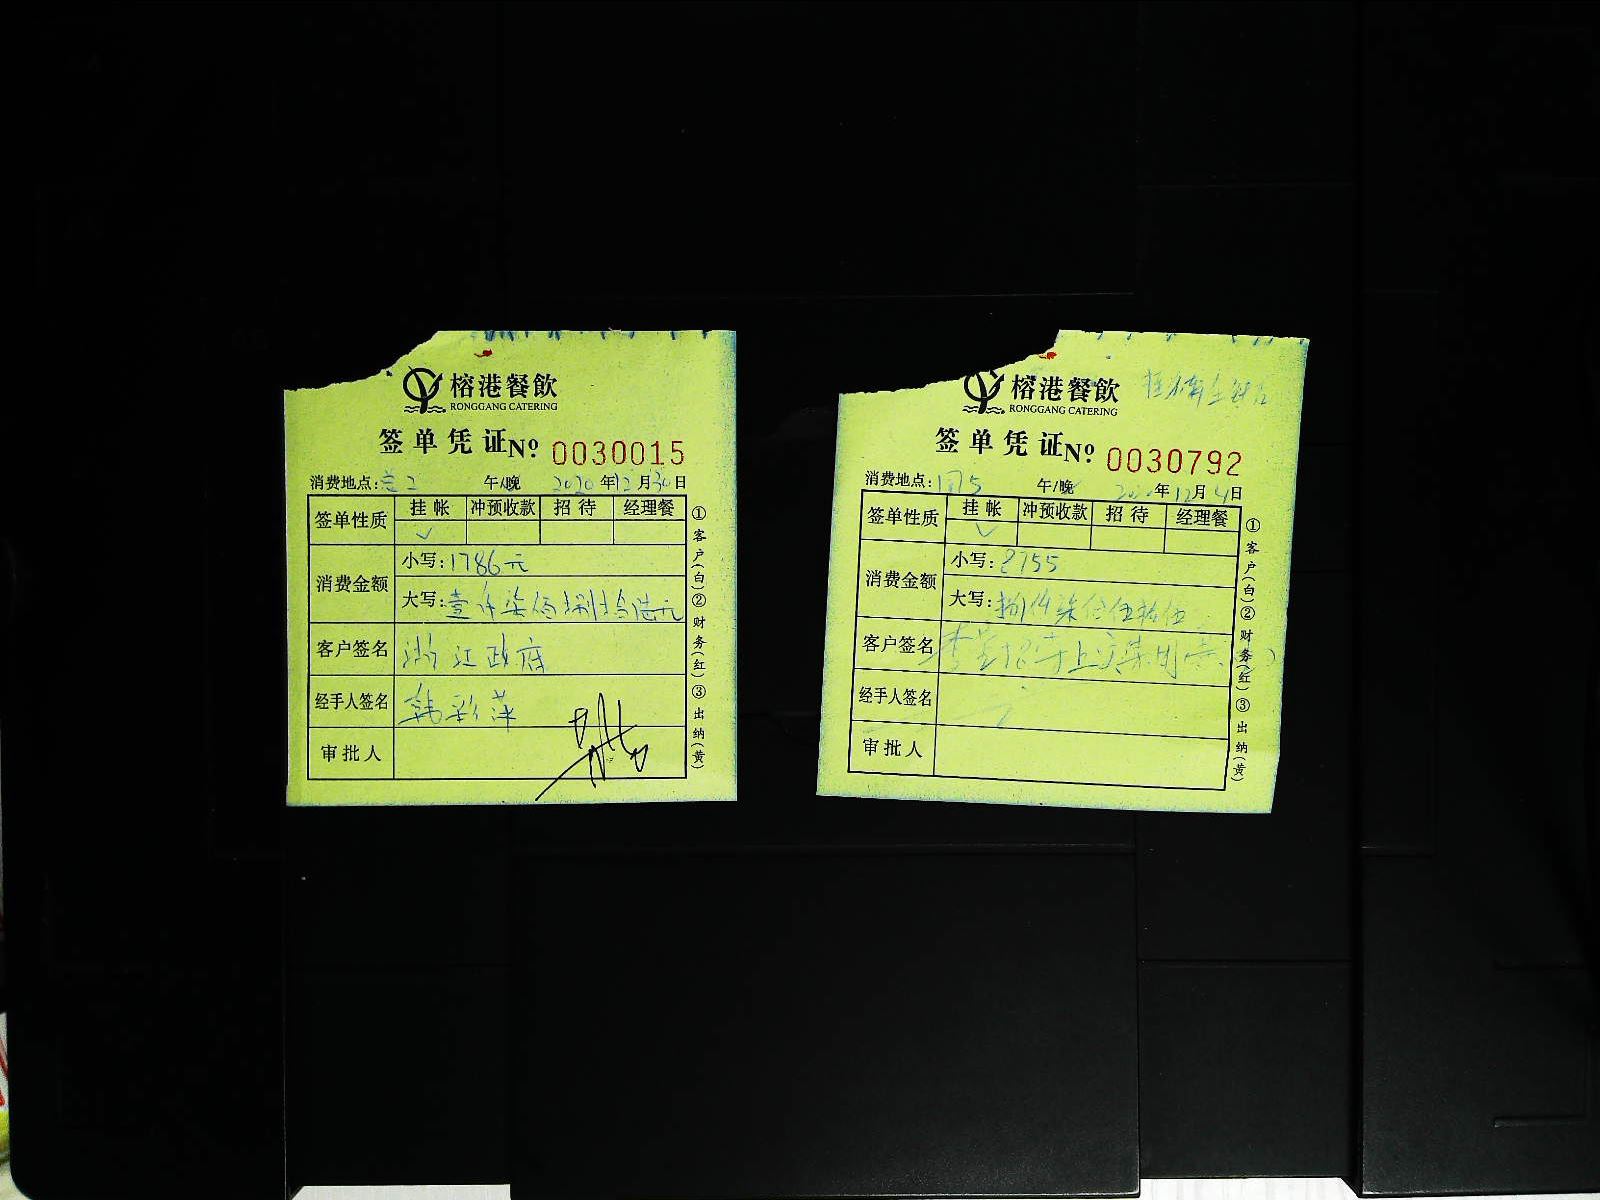 榕港餐飲
RONGGANG CATERING
签单凭证 No. 0030015
消费地点: 2 午/晚 2020年12月30日
签单性质 挂帐 冲预收款 招待 经理餐
✓
消费金额 小写:1786元
大写:壹仟柒佰捌拾陆元
客户签名 浙江政府
经手人签名 韩彩萍
审批人
①客户(白)②财务(红)③出纳(黄)
榕港餐飲
RONGGANG CATERING
签单凭证 No. 0030792
消费地点: 5 午/晚 年12月4日
签单性质 挂帐 冲预收款 招待 经理餐
✓
消费金额 小写:8755
大写:捌仟柒佰伍拾伍
客户签名
经手人签名
审批人
①客户(白)②财务(红)③出纳(黄)